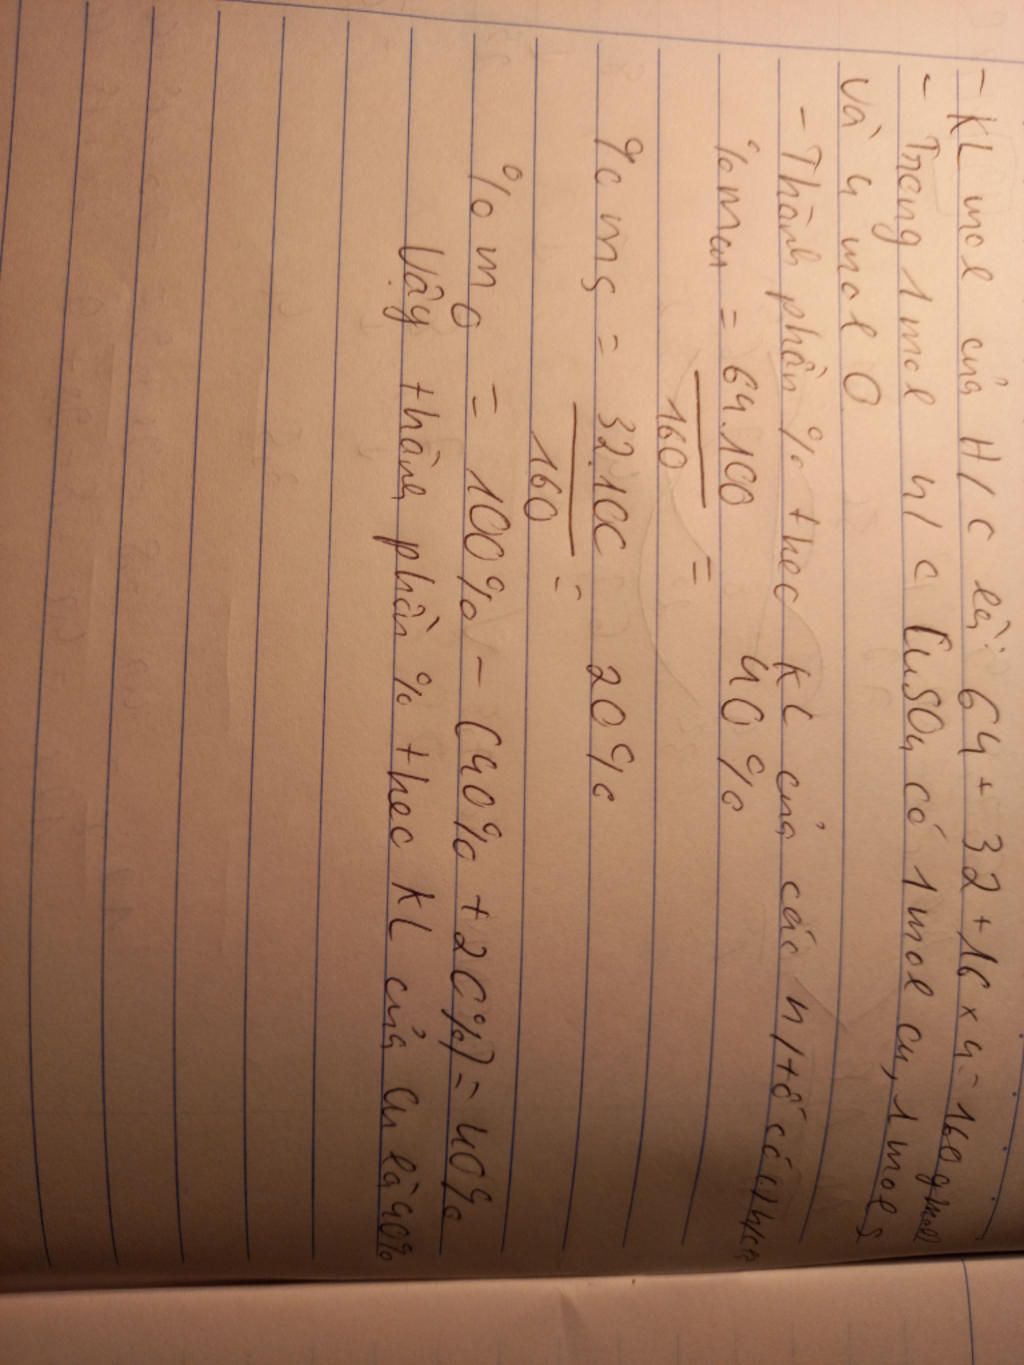 - KL mol của H/c là: 64 + 32 + 16 x 4 = 160 g/mol
- Trong 1 mol h/c CuSO4 có 1 mol Cu, 1 mol S
và 4 mol O
- Thành phần % theo KL của các n/tố có
%mCu = 64.100 = 40%
160
%mS = 32.100 = 20%
160
%mO = 100% - (40% + 20%) = 40%
Vậy thành phần % theo KL của Cu là 40%